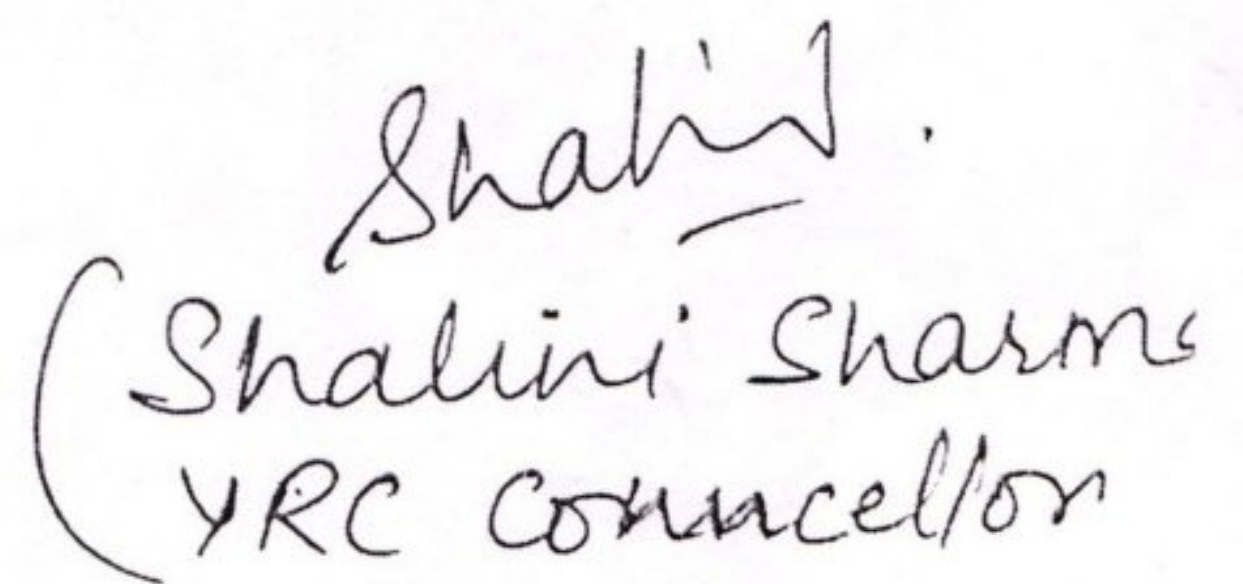 Shalini.
(Shalini Sharma
YRC Councellor